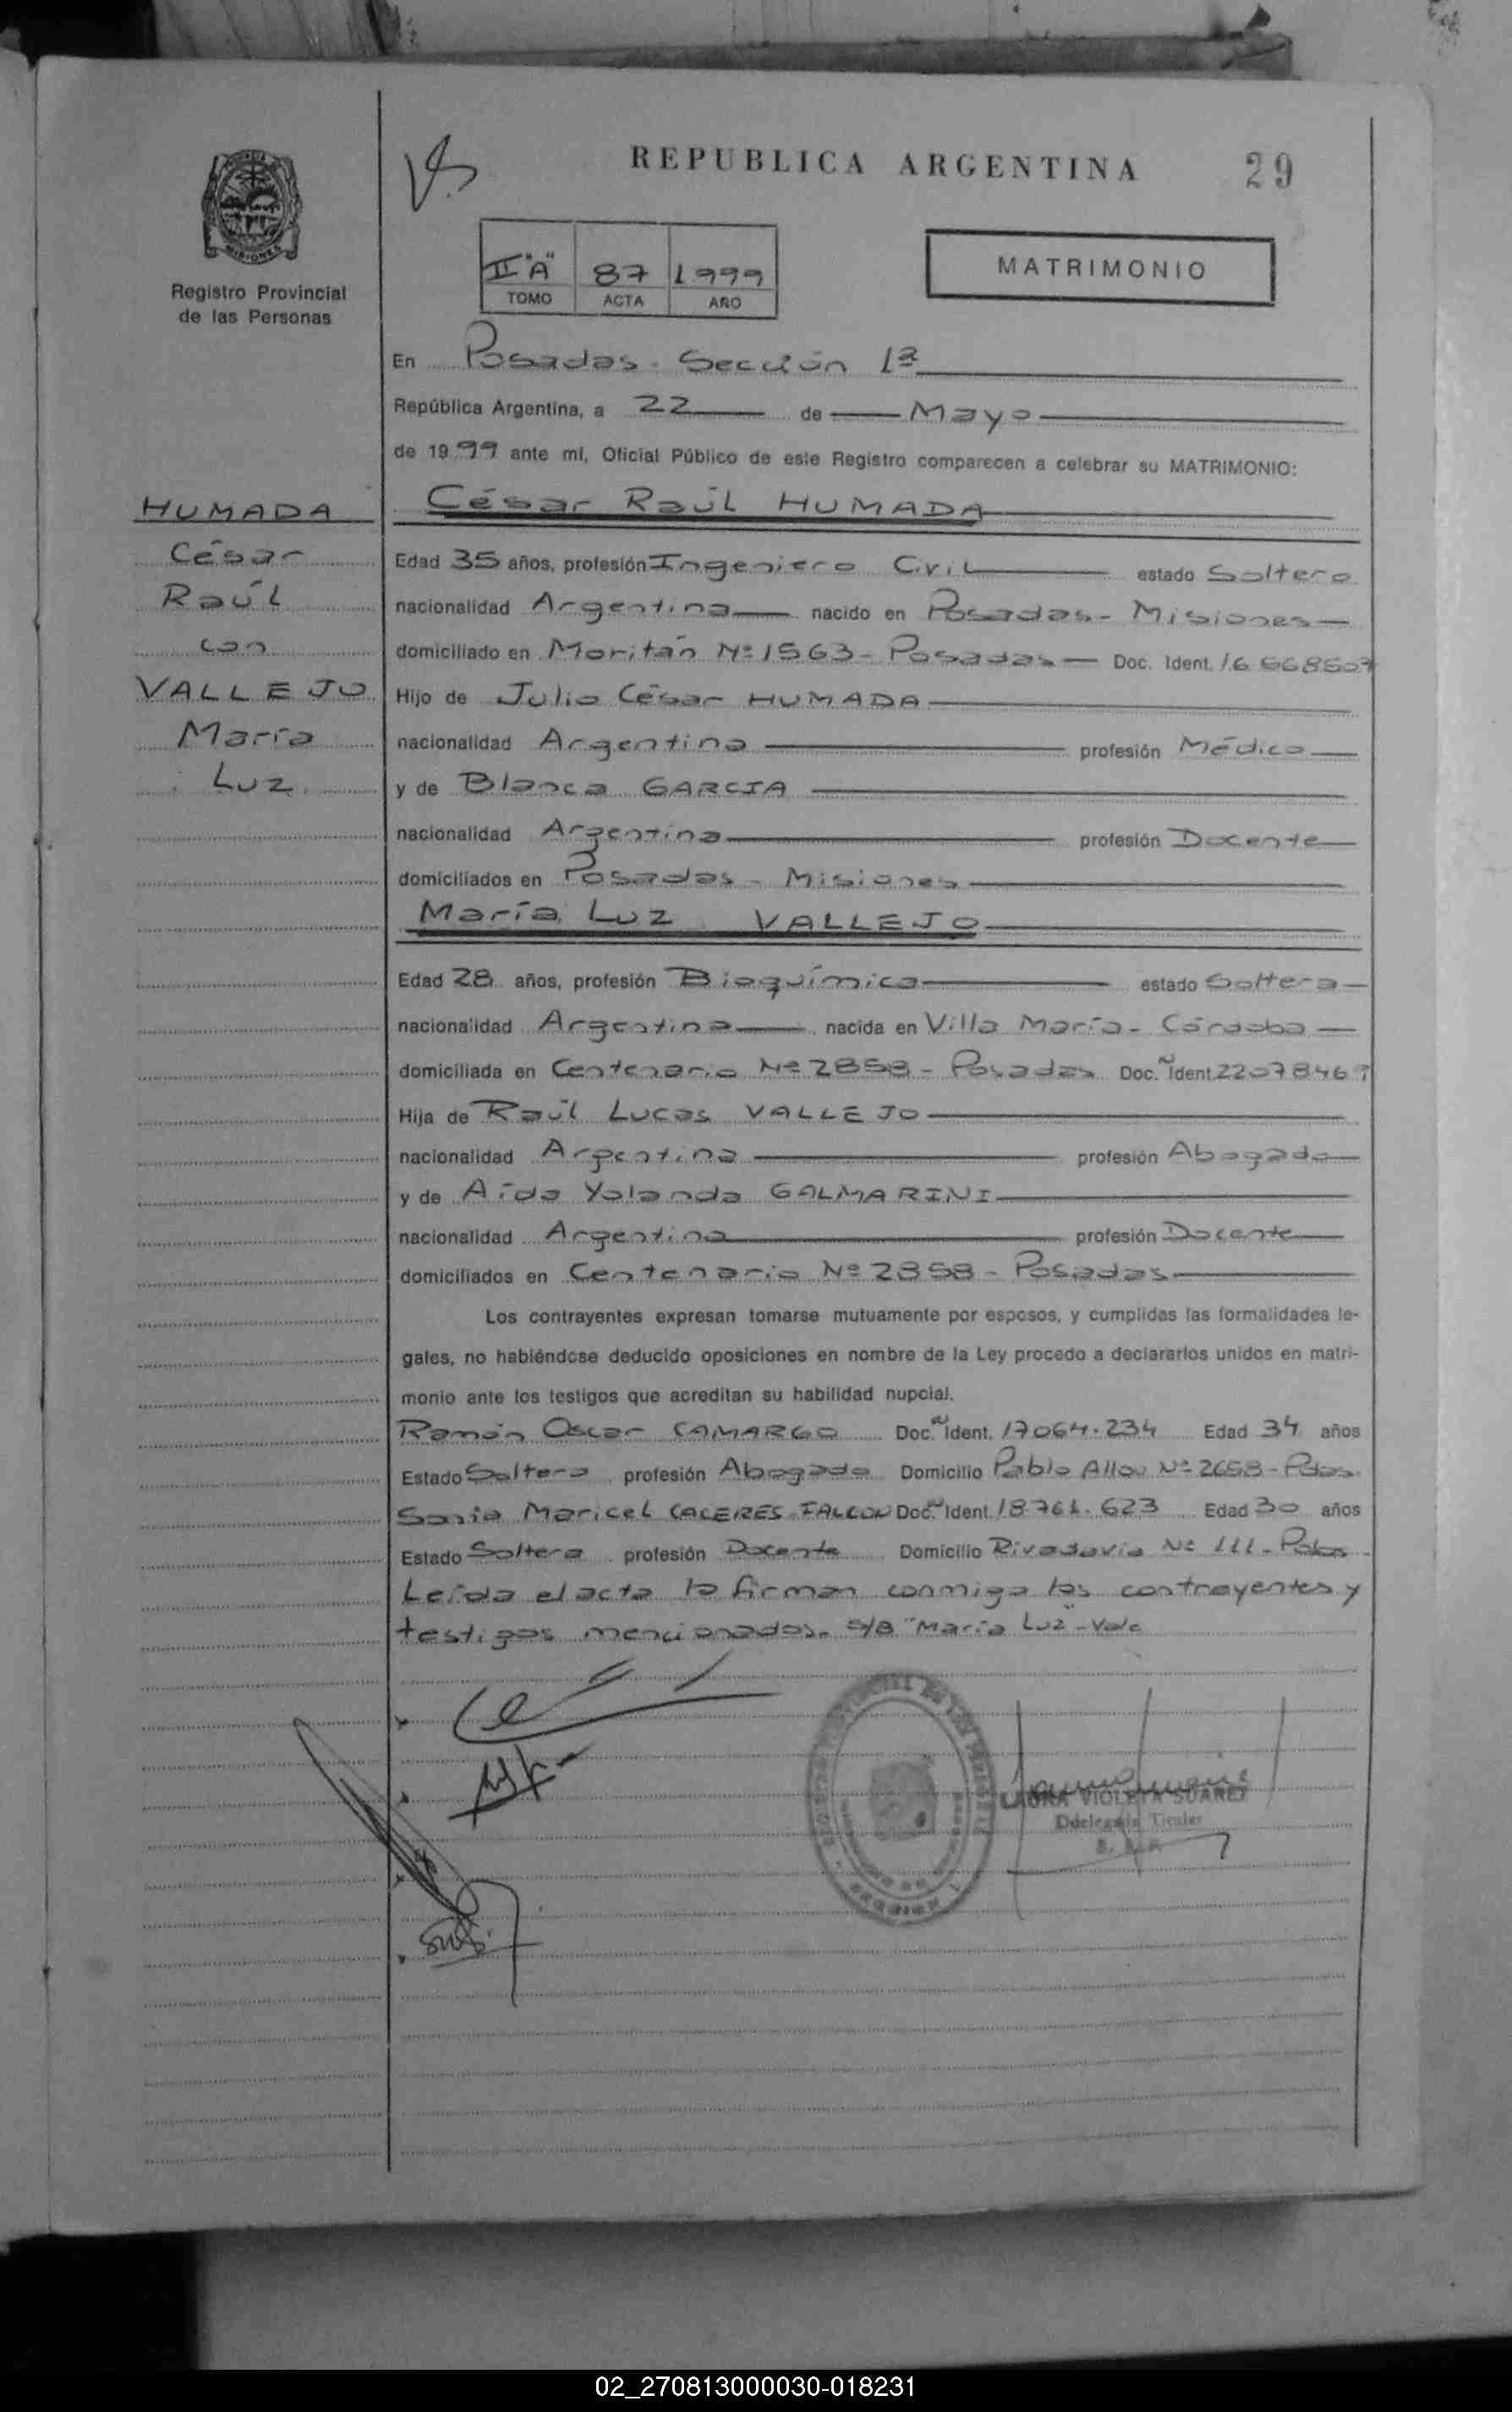 REPUBLICA ARGENTINA 29
Registro Provincial
de las Personas
II "A" 87 1999
TOMO ACTA AÑO
MATRIMONIO
En Posadas - Sección 1ª
República Argentina, a 22 de Mayo
de 1999 ante mí, Oficial Público de este Registro comparecen a celebrar su MATRIMONIO:
HUMADA
César
Raúl
con
VALLEJO
María
Luz
César Raúl HUMADA
Edad 35 años, profesión Ingeniero Civil estado Soltero
nacionalidad Argentina nacido en Posadas - Misiones
domiciliado en Moritán Nº 1563 - Posadas Doc. Ident.
Hijo de Julio César HUMADA
nacionalidad Argentina profesión Médico
y de Blanca GARCIA
nacionalidad Argentina profesión Docente
domiciliados en Posadas - Misiones
María Luz VALLEJO
Edad 28 años, profesión Bioquímica estado Soltera
nacionalidad Argentina nacida en Villa María - Córdoba
domiciliada en Centenario Nº 2858 - Posadas Doc. Ident.
Hija de Raúl Lucas VALLEJO
nacionalidad Argentina profesión Abogado
y de Aída Yolanda GALMARINI
nacionalidad Argentina profesión Docente
domiciliados en Centenario Nº 2858 - Posadas
Los contrayentes expresan tomarse mutuamente por esposos, y cumplidas las formalidades le-
gales, no habiéndose deducido oposiciones en nombre de la Ley procedo a declararlos unidos en matri-
monio ante los testigos que acreditan su habilidad nupcial.
Ramón Oscar CAMARGO Doc. Ident. 17064.234 Edad 34 años
Estado Soltero profesión Abogado Domicilio Pablo Nº 2658 - Pdas.
Sonia Maricel CACERES FALCON Doc. Ident. 18.761.623 Edad 30 años
Estado Soltera profesión Docente Domicilio Rivadavia Nº 111 - Pdas
Leída el acta la firman conmigo los contrayentes y
testigos mencionados. s/b "María Luz" - Vale
LAURA VIOLETA SUAREZ
Titular
02_270813000030-018231